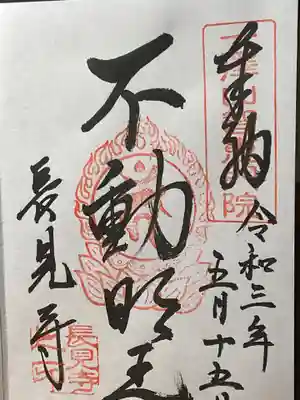 奉納
令和三年
五月十五日
不動明王
長見寺
長見寺